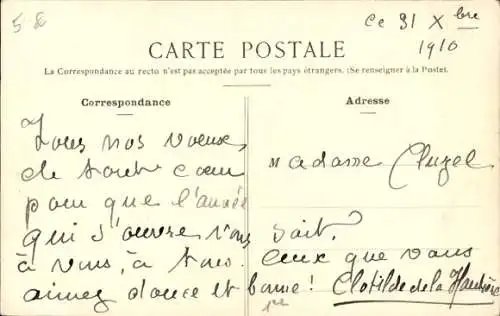 5 E
Ce 31 Xbre
1910
CARTE POSTALE
La Correspondance au recto n'est pas acceptée par tous les pays étrangers. (Se renseigner à la Poste).
Correspondance
Adresse
Tous nos voeux,
de tout coeur
pour que l'année
qui s'ouvre vous
à vous, à tous
aimez douce et bonne!
Madame Cluzel
soit.
ceux que vous
Clotilde de la